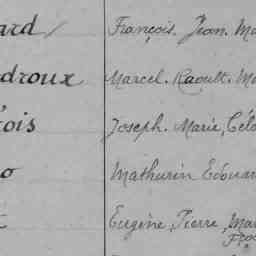 ard François. Jean. Ma
droux Marcel. Raoult. Ma
çois Joseph. Marie, Célo
o Mathurin Edouar
t Eugène, Pierre, Mar
Fço